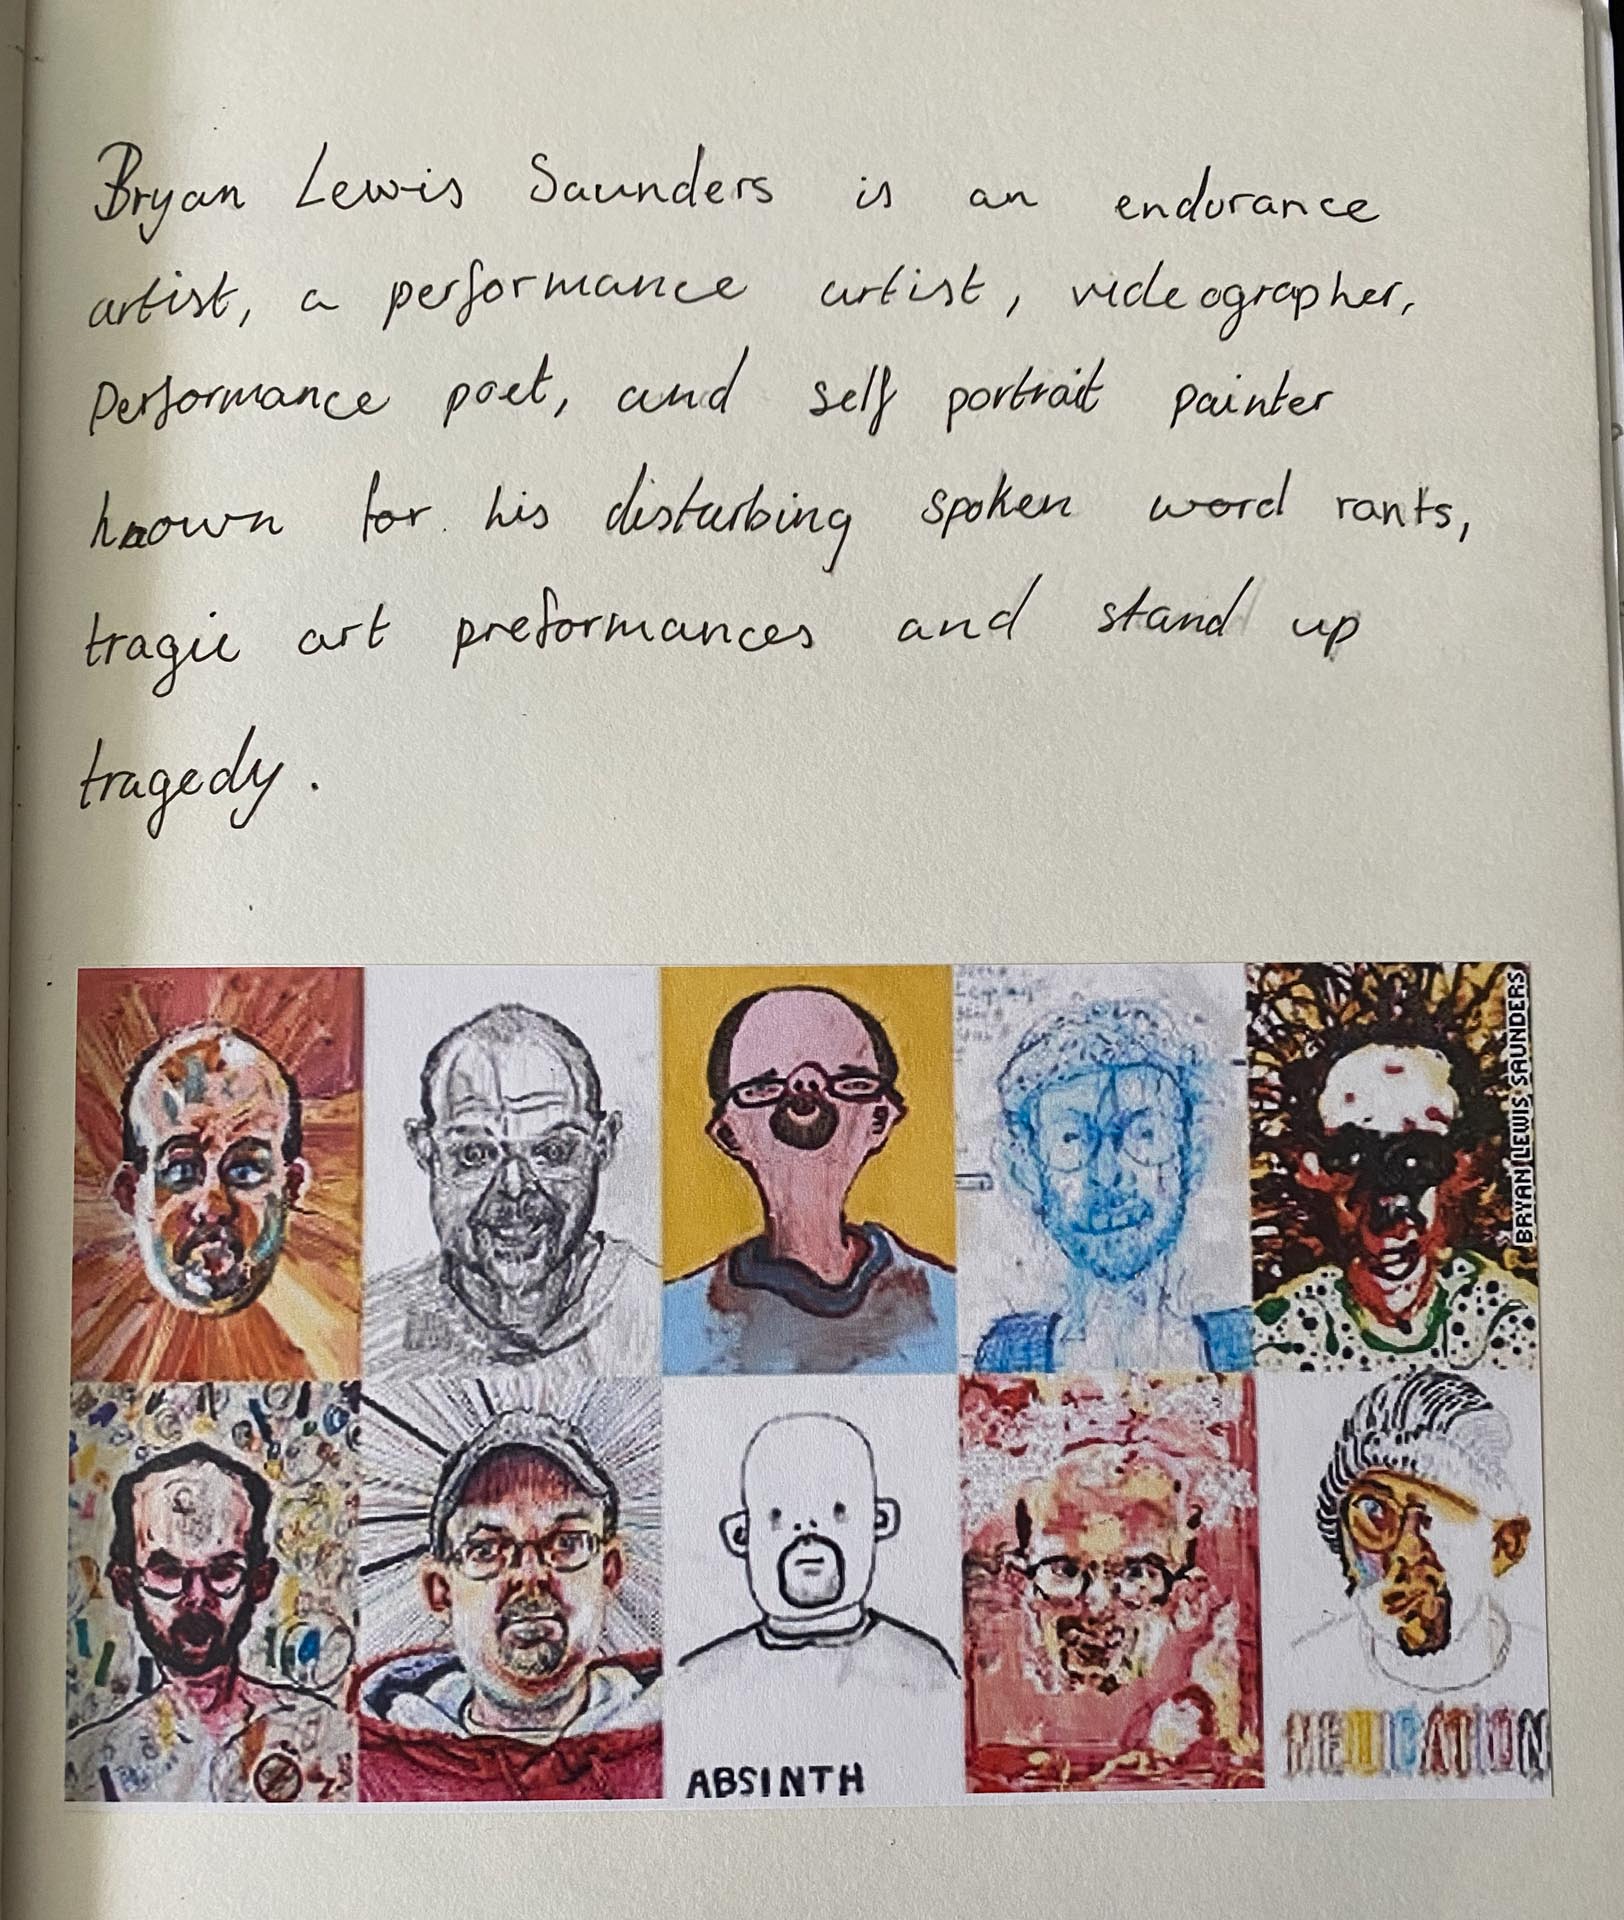 Bryan Lewis Saunders is an endurance
artist, a performance artist, videographer,
Performance poet, and self portrait painter
known for his disturbing spoken word rants,
tragic art preformances and stand up
tragedy.
BRYAN LEWIS SAUNDERS
ABSINTH
MEDICATION